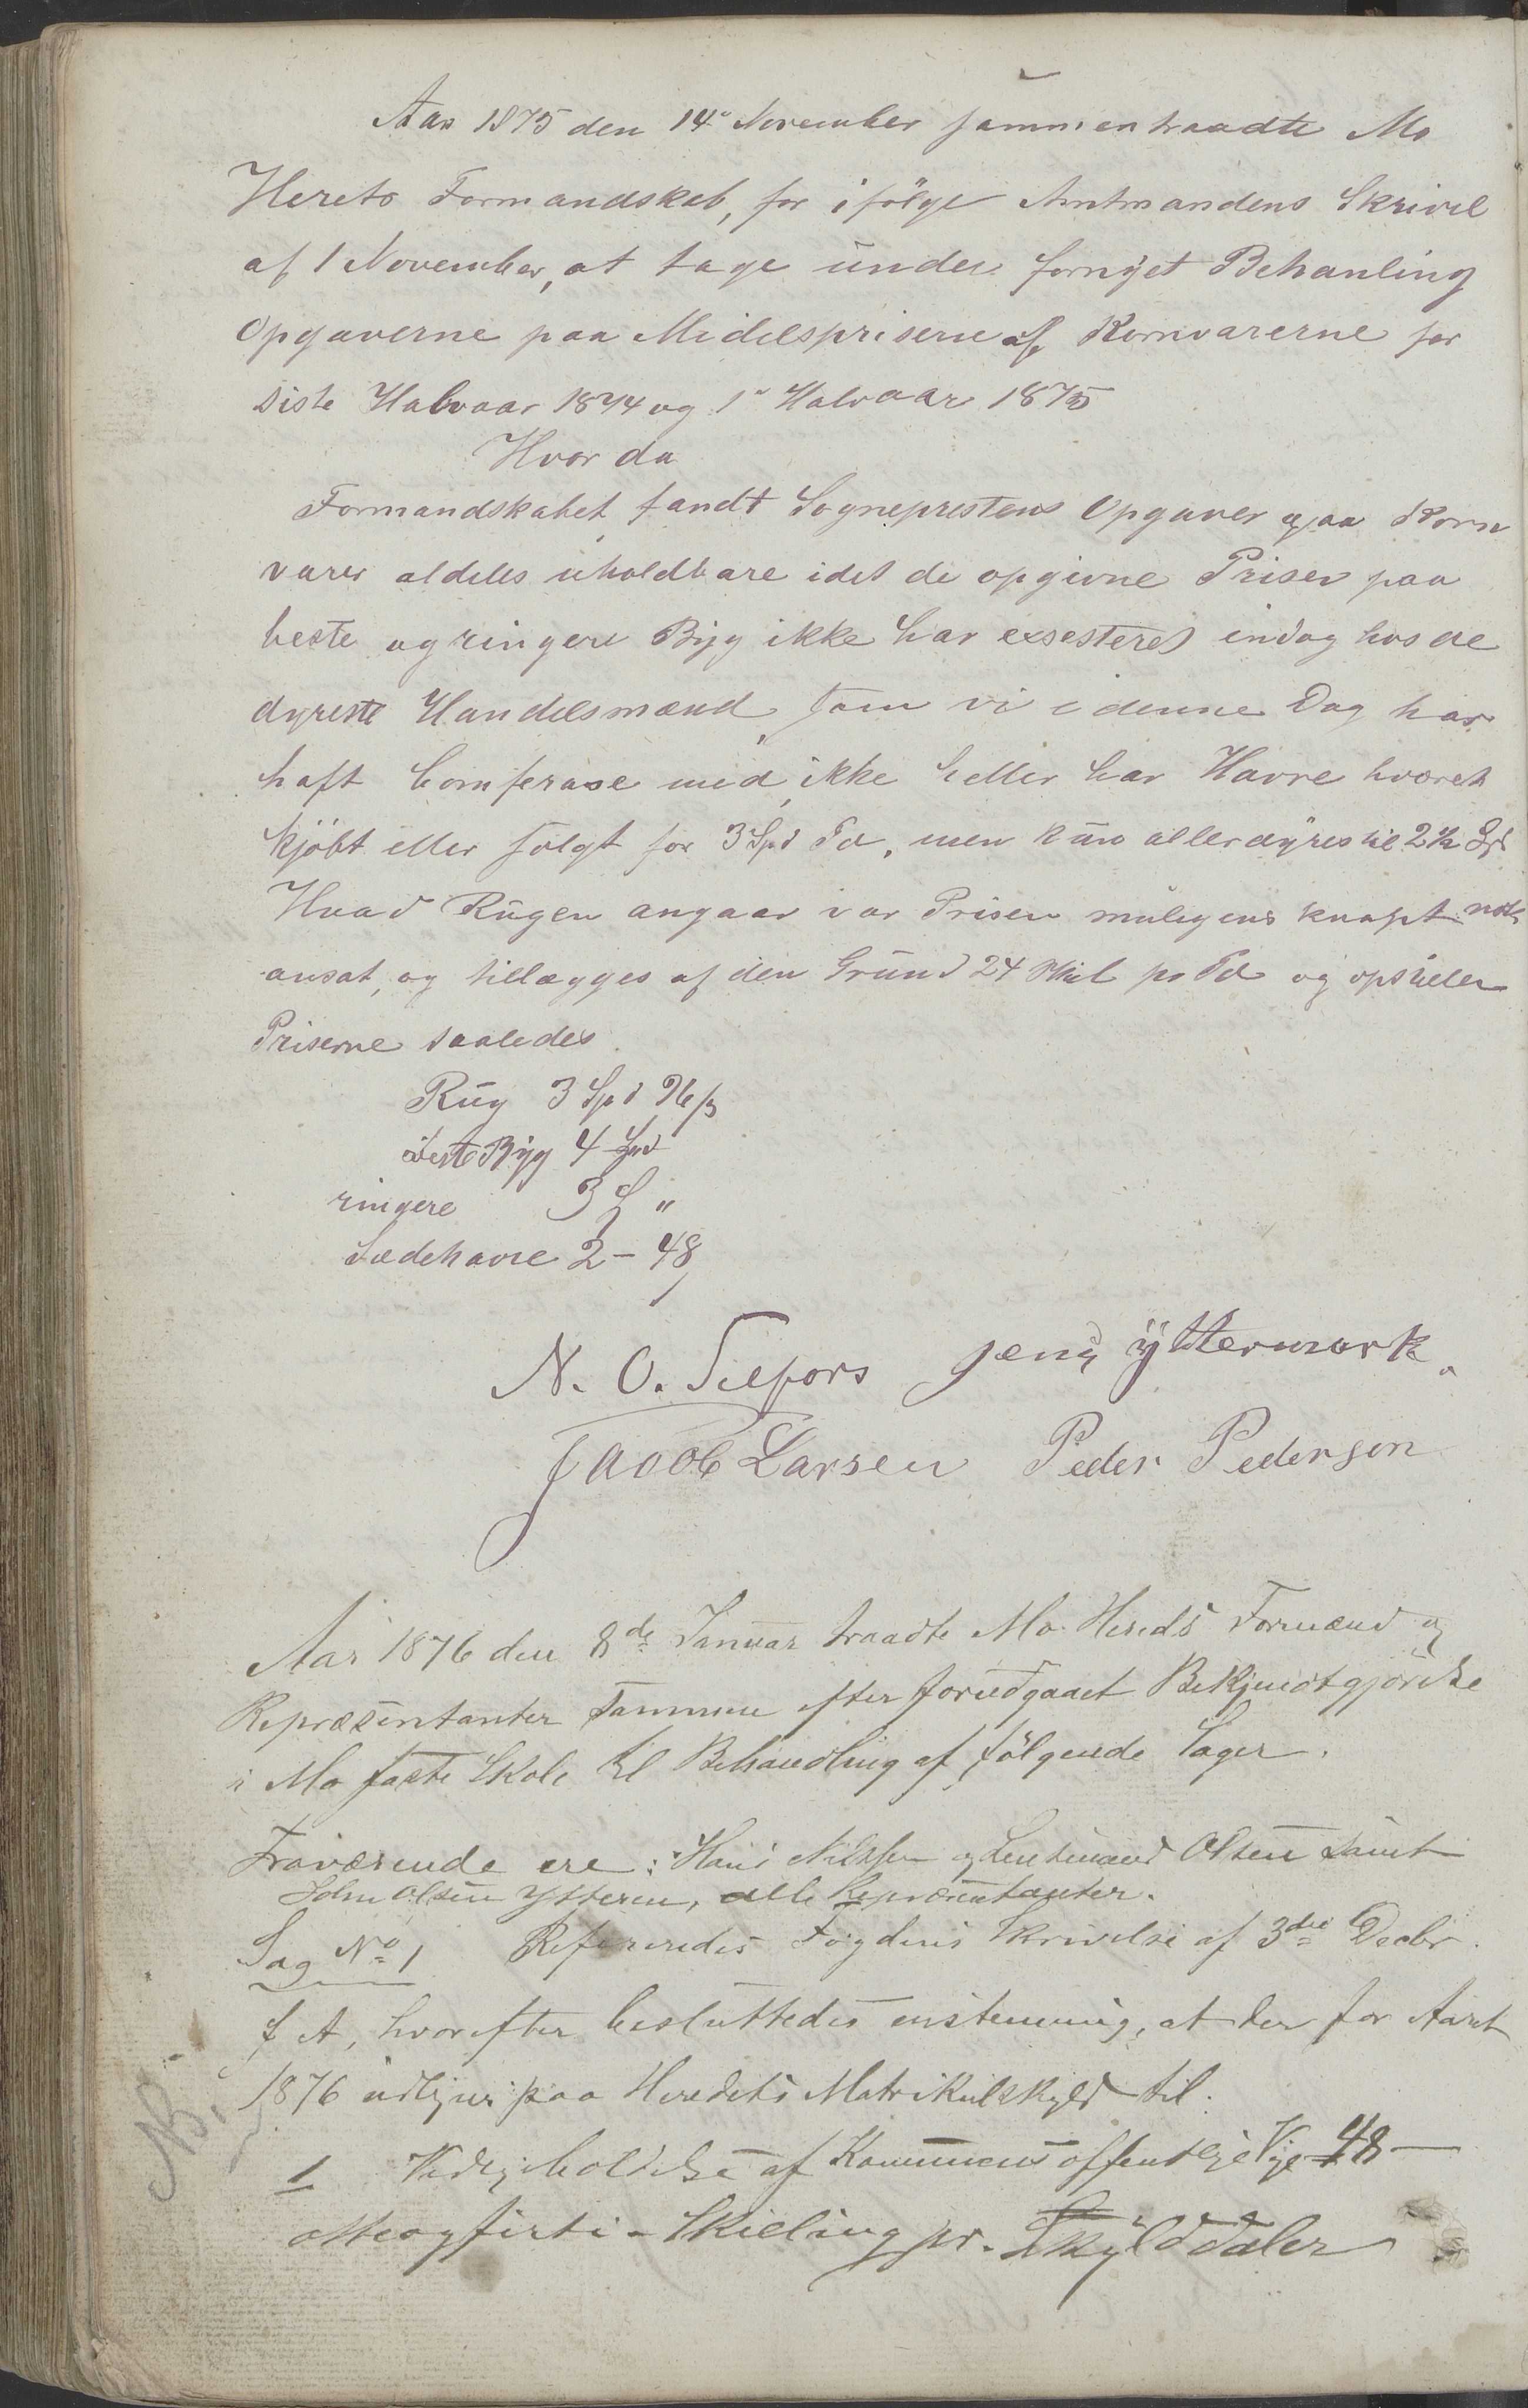 Aar 1875 den 14de November sammentraadte Mo
Herets Formandskab, for ifölge Amtmandens Skrivel
af 1 November, at tage under fornyet Behanling
Opgaverne paa Midelspriserne af Kornvarerne for
siste Halvaar 1874 og 1ste Halvaar 1875
Hvor da
Formandskabet fandt Sogneprestens Opgaver paa Korn
varer aldeles uholdbare idet de opgivne Priser paa
beste og ringere Byg ikke har exsesteret endog hos de
dyreste Handelsmænd, som vi i denne Dag har
haft Comferase med, ikke heller har Havre hværet
kjöbt eller solgt for 3 Spd Td, men kun allerdyrest til 2½ Spd
Hvad Rugen angaar var Prisen muligens knapt nok
ansat, og tillægges af den Grund 24 Skil pr Td og opstiller
Priserne saaledes
Rug 3 Spd 96 ß
beste Byg 4 Spd
ringere 3 S "
Sædehavre 2 - 48
N. O. Selfors Jens Yttermark.
Jacob Larsen Peder Pedersen
Aar 1876 den 8de Januar traadte Mo Hereds Formænd og
Repræsentanter sammen efter forudgaaet Bekjendtgjörelse
i Mo faste Skole til Behandling af fölgende Sager.
Fraværende ere: Hans Nilssen og Lensmand Olsen samt
John Olsen Ytteren, alle Repræsentanter.
Sag No 1 Refereredes Fogdens Skrivelse af 3die Decbr.
f A, hvorefter besluttedes enstemmig, at der for Aaret
1876 udlignes paa Heredets Matrikulskyld til.
NB.
1 Vedligeholdelse af Kommunens offentlige Veje 48 —
otteogførti - Skilling pr. Skylddaler